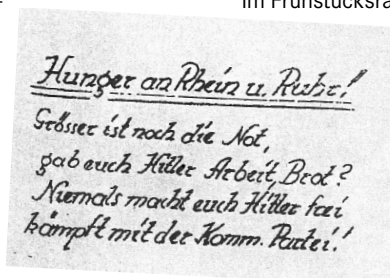 im Frühstücksra
Hunger an Rhein u. Ruhr!"
Grösser ist noch die Not,
gab euch Hitler Arbeit, Brot?
Niemals macht euch Hitler frei
kämpft mit der Komm. Partei.!